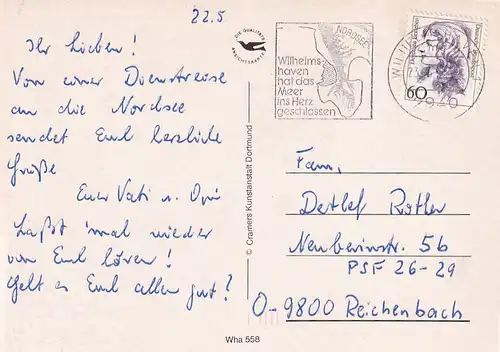 22.5
Ihr Lieben!
Von einer Dienstreise
an die Nordsee
sendet Euch herzliche
Grüße
Euer Vati u. Opi
Laßt 'mal wieder
von Euch hören!
Geht es Euch allen gut?
DIE QUALITÄTS
ANSICHTSKARTE
© Cramers Kunstanstalt Dortmund
Wha 558
NORDSEE
Wilhelms-
haven
hat das
Meer
ins Herz
geschlossen
WILH
2940
60
Fam.
Detlef Rotler
Neuberinstr. 5b
PSF 26-29
O-9800 Reichenbach